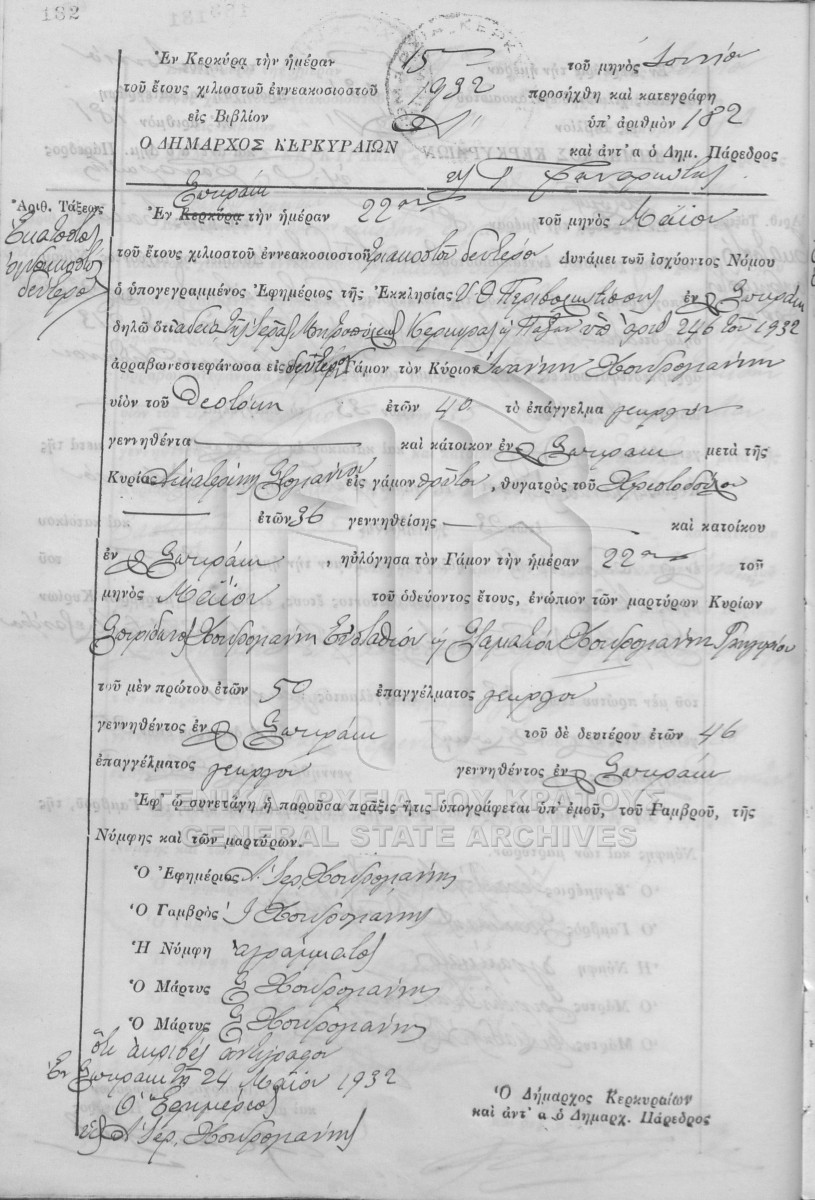 182
Ἐν Κερκύρᾳ τὴν ἡμέραν 15 τοῦ μηνὸς Ἰουνίου
τοῦ ἔτους χιλιοστοῦ ἐννεακοσιοστοῦ 1932 προσήχθη καὶ κατεγράφη
εἰς Βιβλίον Α ὑπ᾿ ἀριθμὸν 182
Ο ΔΗΜΑΡΧΟΣ ΚΕΡΚΥΡΑΙΩΝ καὶ ἀντ᾿ α ὁ Δημ. Πάρεδρος
Ἀριθ. Τάξεως
Ἑκατοστὸς
ὀγδοηκοστὸς
δεύτερος
Ἐν Κερκύρᾳ τὴν ἡμέραν 22αν τοῦ μηνὸς Μαΐου
τοῦ ἔτους χιλιοστοῦ ἐννεακοσιοστοῦ τριακοστοῦ δευτέρου Δυνάμει τοῦ ἰσχύοντος Νόμου
ὁ ὑπογεγραμμένος Ἐφημέριος τῆς Ἐκκλησίας Υ Θ ἐν
δηλῶ ὅτι ἀδείᾳ τῆς Ἱερᾶς Μητροπόλεως Κερκύρας ἡ Παξῶν ὑπ ἀριθ 246 τοῦ 1932
ἀρραβωνεστεφάνωσα εἰς δεύτερον Γάμον τὸν Κύριον Ἰωάννην Χονδρογιάννην
υἱὸν τοῦ Θεοτόκη ἐτῶν 40 τὸ ἐπάγγελμα γεωργὸν
γεννηθέντα καὶ κάτοικον ἐν μετὰ τῆς
Κυρίας Αἰκατερίνης εἰς γάμον πρῶτον, θυγατρὸς τοῦ Χριστοδούλου
ἐτῶν 36 γεννηθείσης καὶ κατοίκου
ἐν , ηὐλόγησα τὸν Γάμον τὴν ἡμέραν 22αν τοῦ
μηνὸς Μαΐου τοῦ ὁδεύοντος ἔτους, ἐνώπιον τῶν μαρτύρων Κυρίων
Σπυρίδωνος Χονδρογιάννη Εὐσταθίου ἡ Σταματίου Χονδρογιάννη Γρηγορίου
τοῦ μὲν πρώτου ἐτῶν 50 ἐπαγγέλματος γεωργοῦ
γεννηθέντος ἐν τοῦ δὲ δευτέρου ἐτῶν 46
ἐπαγγέλματος γεωργοῦ γεννηθέντος ἐν
Ἐφ᾿ ᾧ συνετάγη ἡ παροῦσα πρᾶξις ἥτις ὑπογράφεται ὑπ᾿ ἐμοῦ, τοῦ Γαμβροῦ, τῆς
Νύμφης καὶ τῶν μαρτύρων.
ΓΕΝΙΚΑ ΑΡΧΕΙΑ ΤΟΥ ΚΡΑΤΟΥΣ
GENERAL STATE ARCHIVES
Ὁ Ἐφημέριος Ἱερ. Χονδρογιάννης
Ὁ Γαμβρὸς Ι Χονδρογιάννης
Ἡ Νύμφη ἀγράμματος
Ὁ Μάρτυς Σ Χονδρογιάννης
Ὁ Μάρτυς Σ Χονδρογιάννης
ὅτι ἀκριβὲς ἀντίγραφον
Ἐν τῇ 24 Μαΐου 1932
Ὁ Ἐφημέριος
Ἱερ. Χονδρογιάννης
Ὁ Δήμαρχος Κερκυραίων
καὶ ἀντ᾿ α ὁ Δημαρχ. Πάρεδρος